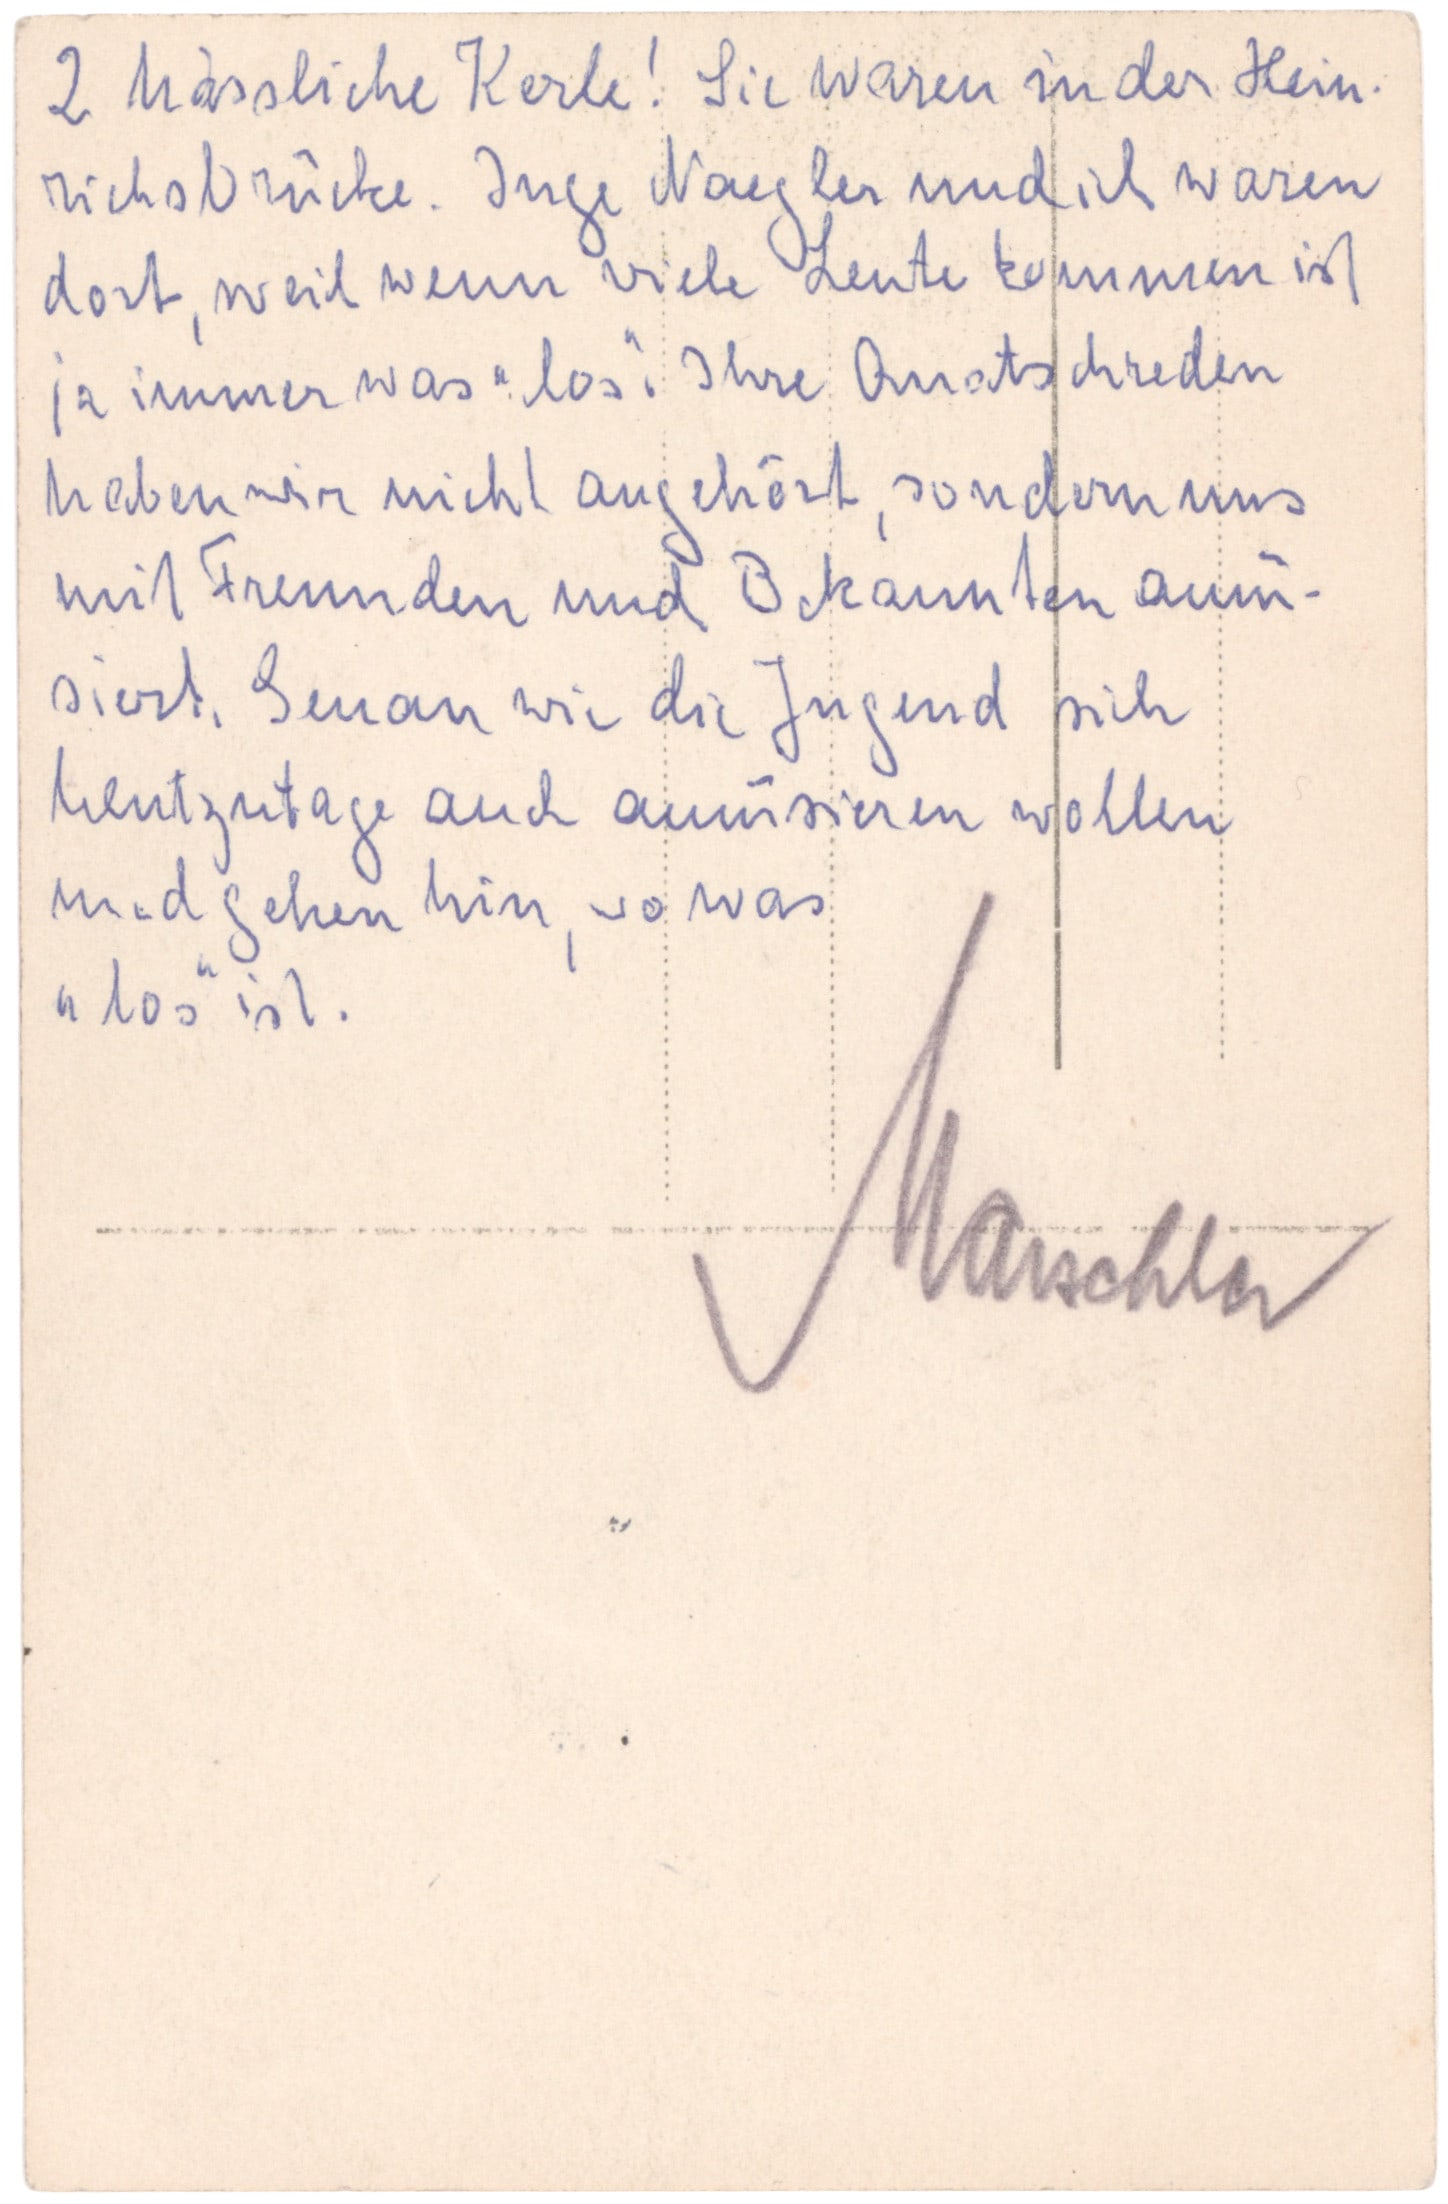 2 hässliche Kerle! Sie waren in der Hein-
richsbrücke. Inge Naegler und ich waren
dort, weil wenn viele Leute kommen ist
ja immer was "los". Ihre Quatschreden
haben wir nicht angehört, sondern uns
mit Freunden und Bekannten amü-
siert. Genau wie die Jugend sich
heutzutage auch amüsieren wollen
und gehen hin, wo was
"los" ist.